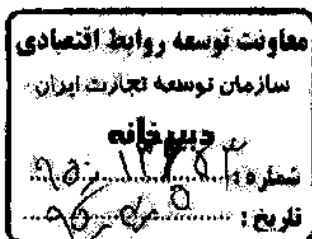 معاونت توسعه روابط اقتصادی
سازمان توسعه تجارت ایران
دبیرخانه
شماره :
تاریخ :